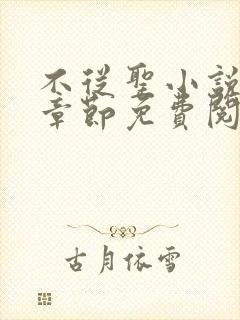 不従聖小説
章節免費閱
古月依雪